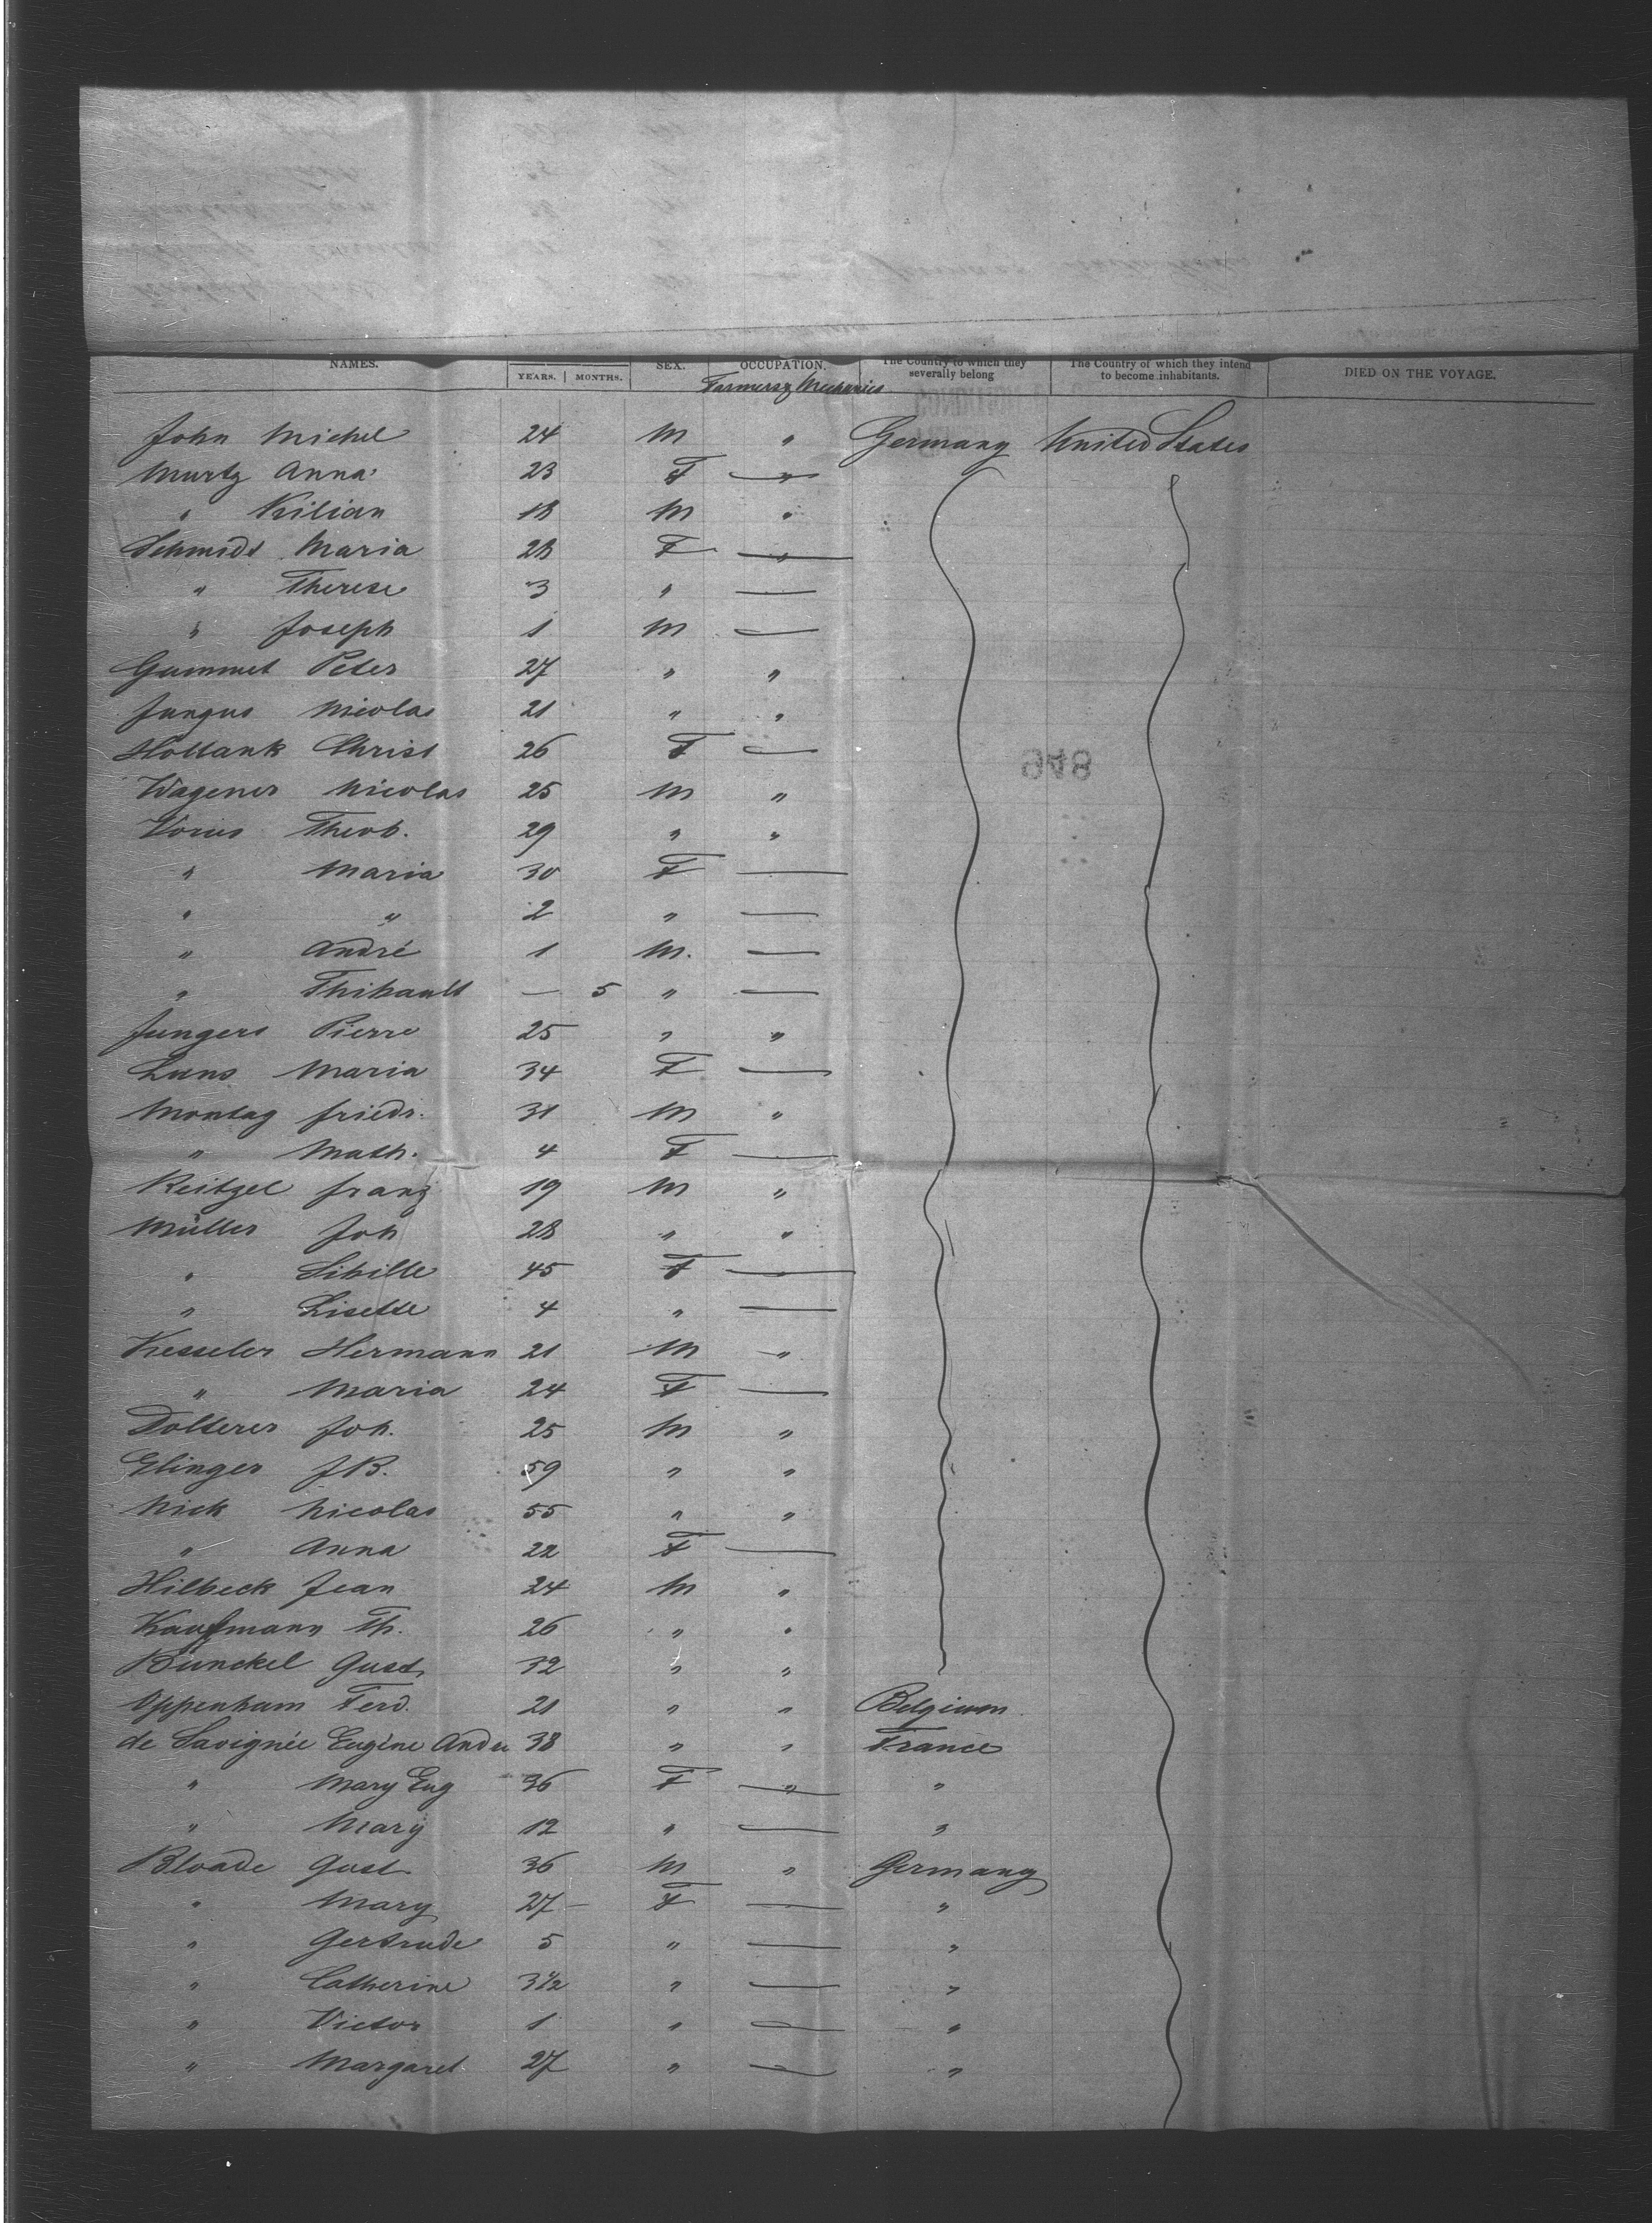 NAMES. YEARS. MONTHS. SEX. OCCUPATION. The Country to which they severally belong The Country of which they intend to become inhabitants. DIED ON THE VOYAGE.
Farmers & Mechanics
John Michel 24 M " Germany United States
Murtz Anna 23 F — "
" Kilian 18 M "
Schmidt Maria 28 F — "
" Therese 3 " —
" Joseph 1 M —
Gummet Peter 27 " "
Jungus Nicolas 21 " "
Hollank Christ 26 F —
Wagener Nicolas 25 M "
Vorus Theob. 29 " "
" Maria 30 F —
" " 2 " —
" André 1 M. —
" Thibault — 5 " —
Jungers Pierre 25 " "
Luns Maria 34 F —
Montag friedr. 31 M "
" Math. 4 F —
Reitzel franz 19 M "
Müller Joh 28 " "
" Sibille 45 F —
" Lisette 4 " —
Kesseler Hermann 21 M "
" Maria 24 F —
Dolterer Joh. 25 M "
Elinger JB. 59 " "
Nick Nicolas 55 " "
" Anna 22 F —
Hilbeck Jean 24 M "
Kauffmann Th. 26 " "
Bünckel Gust. 32 " "
Oppenham Ferd. 21 " " Belgium
de Savignée Eugène Andre 38 " " France
" Mary Eug 36 F — " "
" Mary 12 " — "
Bloade Gust. 36 M " Germany
" Mary 27 – F — "
" Gertrude 5 " — "
" Catherine 3 1/2 " — "
" Victor 1 " — "
" Margaret 27 " — "
948